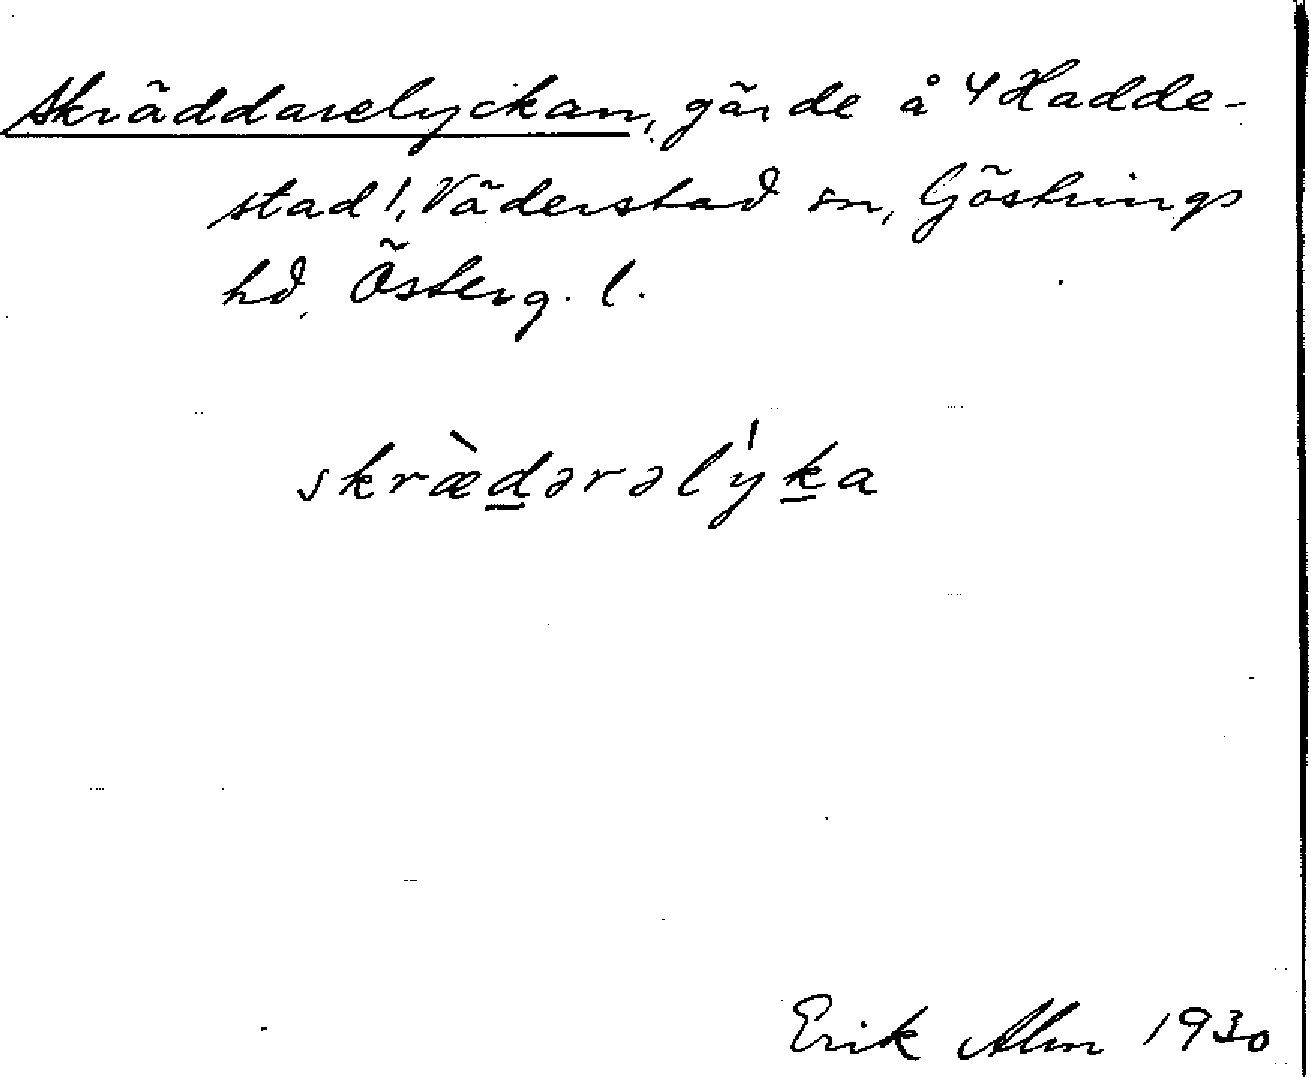 Skräddarelyckan, gärde å 4 Hadde-
stad!, Väderstad sn, Göstrings
hd, Österg. l.
skræ̀d̲ərəlýk̲a
Erik Alm 1930